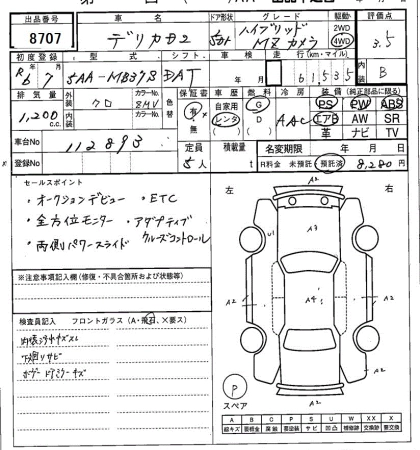 出品番号 車名 ドア形状 グレード 駆動 評価点
8707 デリカD2 5ドア ハイブリッド MZ カメラ 2WD 4WD 3.5
初度登録 型式 シフト 車検 走行(km・マイル) 内装
R6年7月 5AA-MB37S DAT 年 月 61535 B
排気量 外装 クロ カラーNo. 色替 保証書 車歴 燃料 冷房 装備(純正部品に限る)
1,200 c.c. 内装 カラーNo. 有・無 自家用 レンタ G D AAC PS PW ABS
エアB AW SR
革 ナビ TV
車台No 112893 定員 積載量 名変期限 年 月 日
登録No 5人 t R料金 未預託 預託済 8,280円
セールスポイント
・オークションデビュー ・ETC
・全方位モニター ・アダプティブ
・両側パワースライド クルーズコントロール
左 右
A2
U1 A3
A2 A4 A2
A2
A2
※注意事項記入欄(修復・不具合箇所および状態等)
検査員記入 フロントガラス(A・飛石、×要ス)
下廻りサビ
P
スペア
A B C P S U W X XX